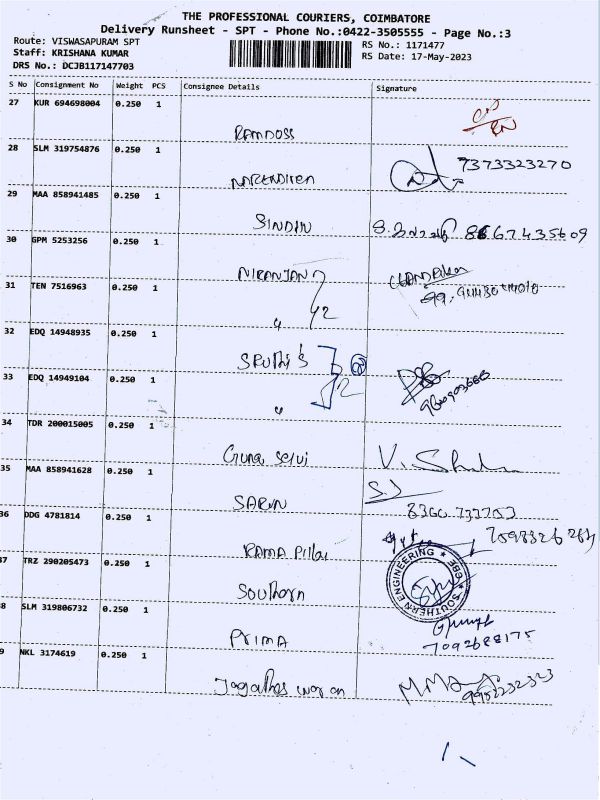 THE PROFESSIONAL COURIERS, COIMBATORE
Delivery Runsheet - SPT - Phone No.:0422-3505555 - Page No.:3
Route: VISWASAPURAM SPT
Staff: KRISHANA KUMAR
DRS No.: DCJB117147703
RS No.: 1171477
RS Date: 17-May-2023
S No Consignment No Weight PCS Consignee Details Signature
27 KUR 694698004 0.250 1
RAMDOSS
28 SLM 319754876 0.250 1
7373323270
NARENDIREN
29 MAA 858941485 0.250 1
SINDHN
8667435609
30 GPM 5253256 0.250 1
NIRANJAN
31 TEN 7516963 0.250 1
" 2
32 EDQ 14948935 0.250 1
SRUTHI'S
33 EDQ 14949104 0.250 1
" 2
34 TDR 200015005 0.250 1
Guna Selvi
35 MAA 858941628 0.250 1
S.J
SARUN
36 DDG 4781814 0.250 1
RAMA Pillai
37 TRZ 290205473 0.250 1
SOUTHERN ENGINEERING ★ CBE ★
Southern
8 SLM 319806732 0.250 1
PRIMA
7092688175
9 NKL 3174619 0.250 1
Jagathes war an
9952232323